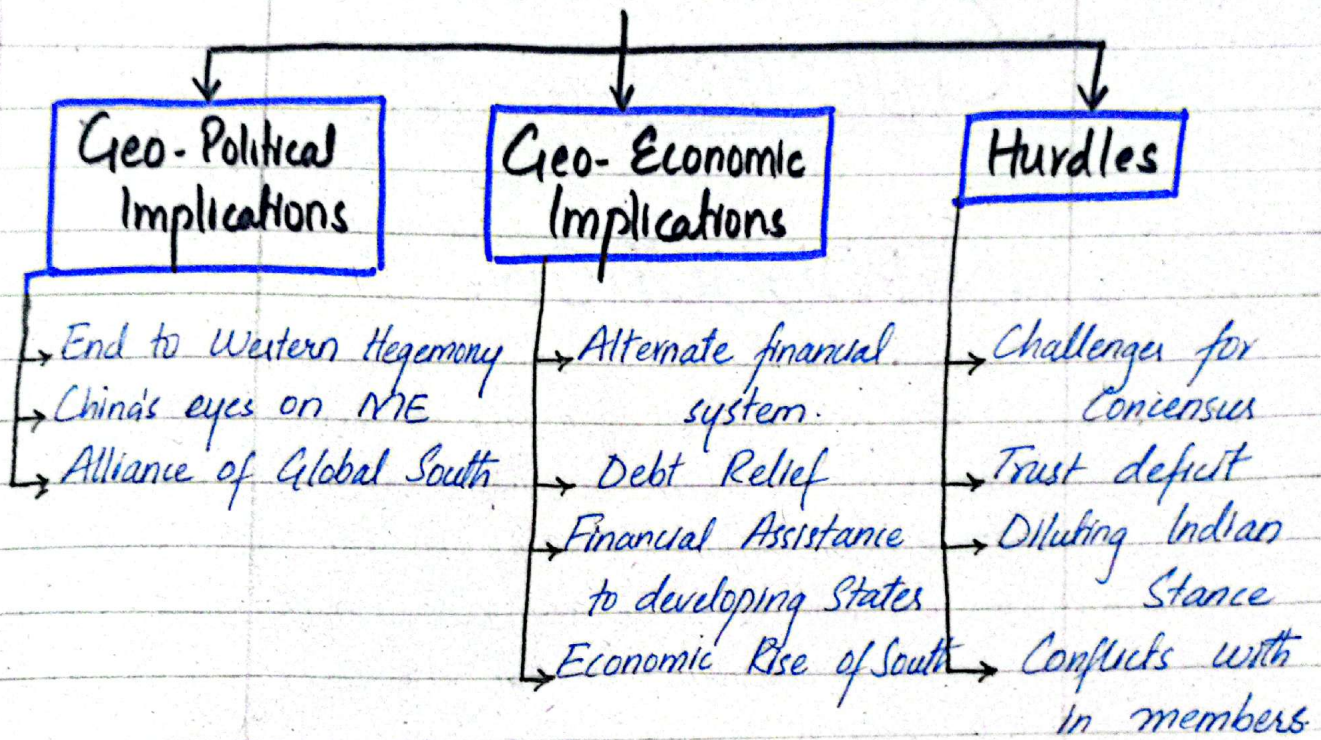 Geo-Political
Implications
End to Western Hegemony
China's eyes on ME
Alliance of Global South
Geo-Economic
Implications
Alternate financial
system.
Debt Relief
Financial Assistance
to developing States
Economic Rise of South
Hurdles
Challenges for
Concensus
Trust deficit
Diluting Indian
Stance
Conflicts with
in members